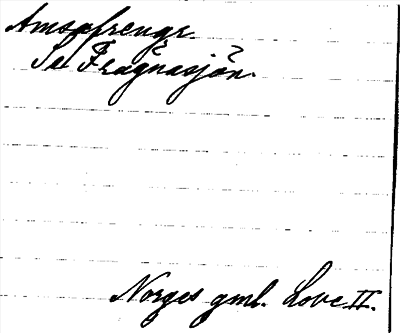 Amsafrengr.
Se Fragnasjón.
Norges gml. Love II.